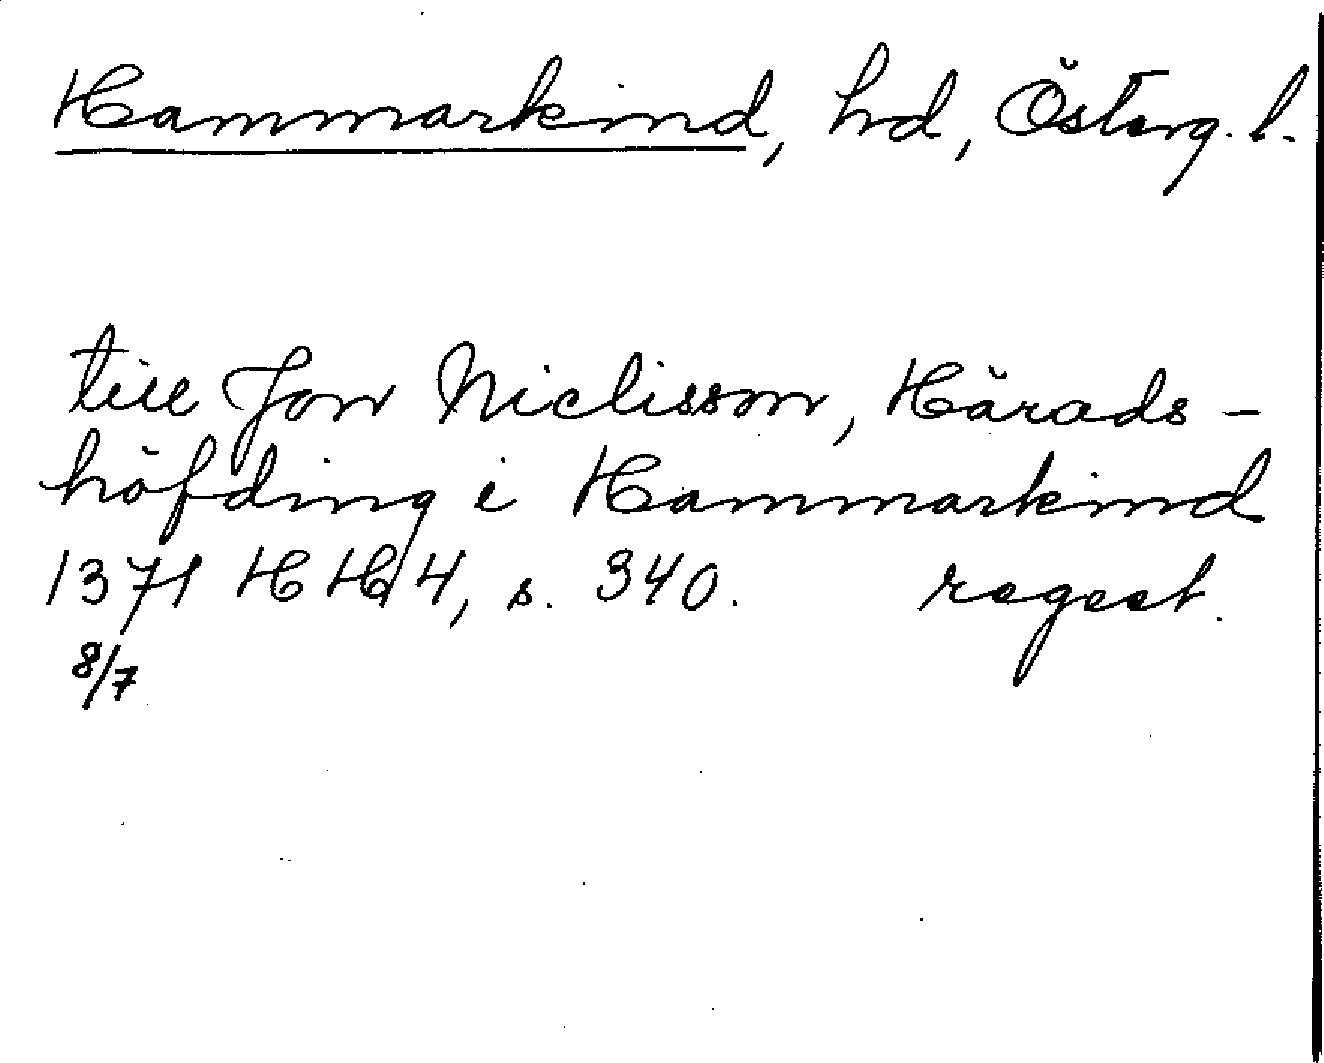 Hammarkind, hd, Österg. l.
till Jon Niclisson, Härads-
höfding i Hammarkind
1371 HH 4, s. 340. regest.
8/7